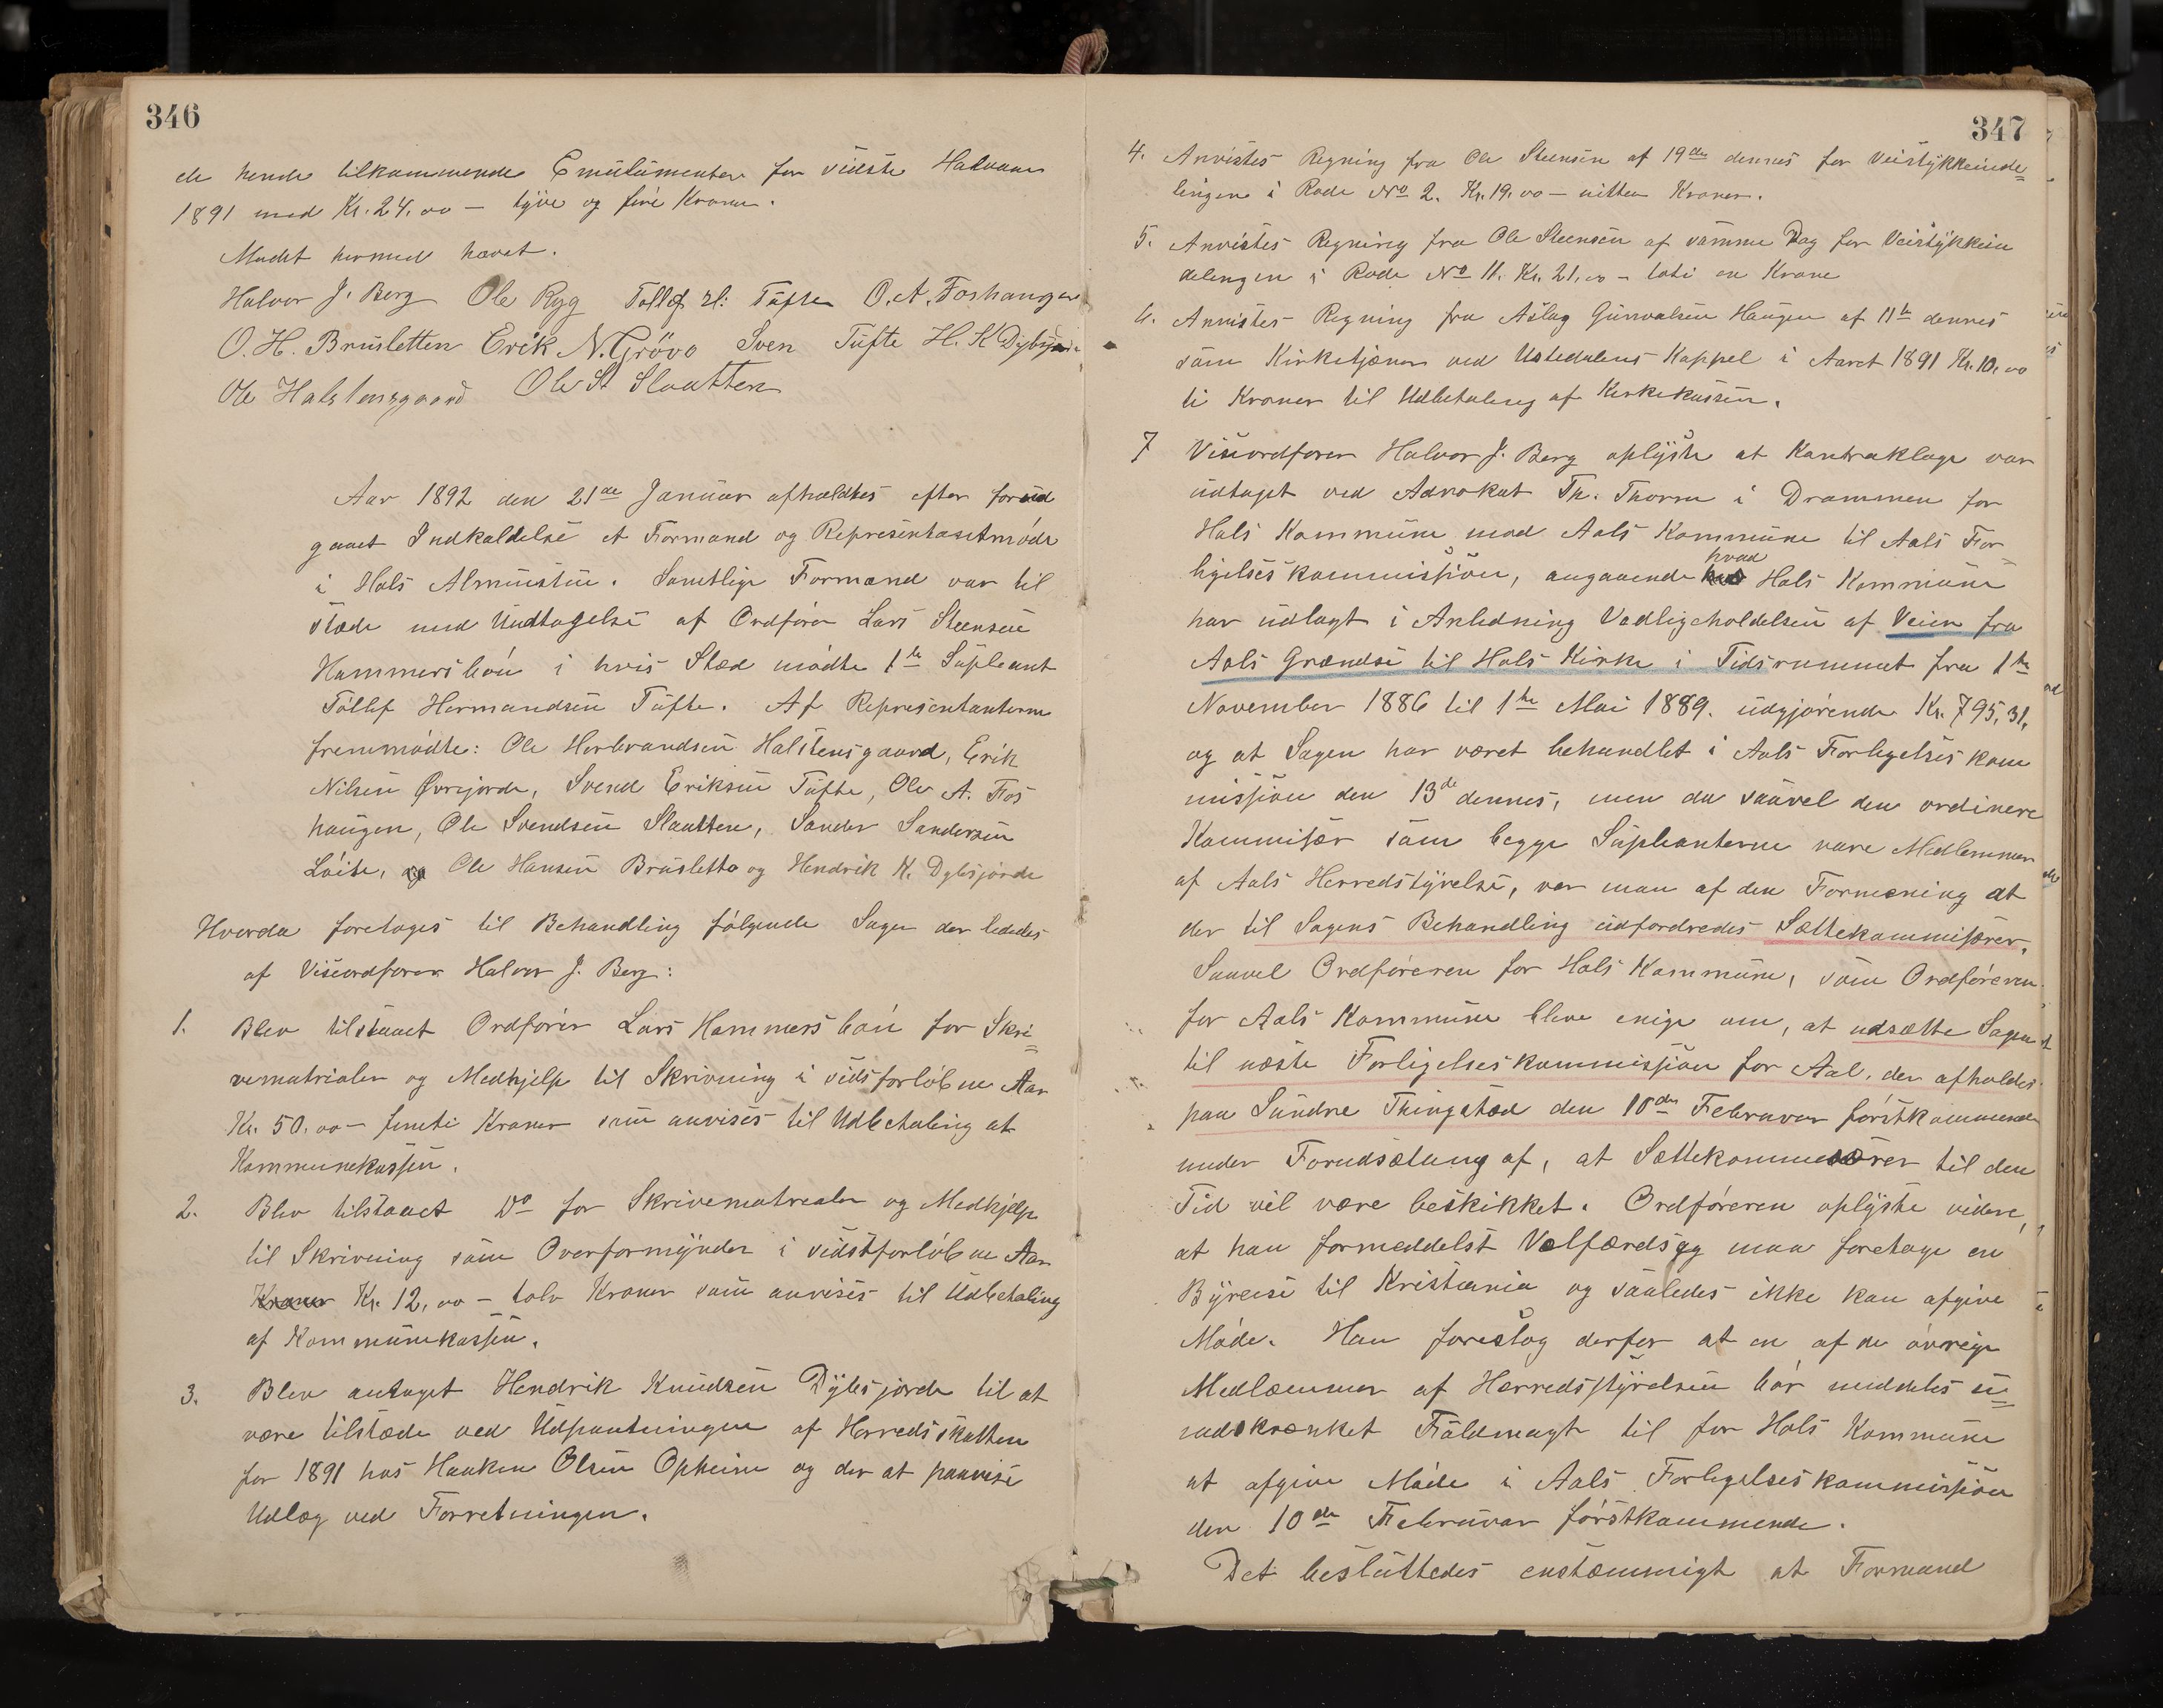 346
de hende tilkommende Emulumenter for sidste Halvaar
1891 med Kr. 24.00 – tyve og fire Kroner.
Mødet hermed hævet.
Halvor J. Berg Ole Ryg Tollef Tufte O. A. Foshaugen
O. H. Brusletten Erik N. Grövo Sven Tufte H. K Dybsjorde
Ole Halstensgaard Ole S Slaatten
Aar 1892 den 21de Januar afholdtes efter forud
gaaet Indkaldelse et Formand og Represententmøde
i Hols Almuestue. Samtlige Formænd var til
stæde med Undtagelse af Ordfører Lars Steensen
Hammersbøn i hvis Stæd mødte 1te Supleant
Tollef Hermandsen Tufte. Af Representanterne
fremmødte: Ole Herbrandsen Halstensgaard, Erik
Nilsen Øvrejorde, Svend Eriksen Tufte, Ole A. Fos
haugen, Ole Svendsen Slaatten, Sander Sandersen
Løite, og Ole Hansen Bruslette og Hendrik K. Dybsjorde
Hvorda foretoges til Behandling følgende Sager der lededes
af Viseordfører Halvor J. Berg:
1. Blev tilstaaet Ordfører Lars Hammersbøn for Skri=
vematrialer og Medhjelp til Skrivning i sidsforløbne Aar
Kr. 50.00 – femti Kroner som anvises til Udbetaling af
Kommunekassen.
2. Blev tilstaaet Do for Skrivematrealer og Medhjelp
til Skrivning som Overformynder i sidstforløbne Aar
Kroner Kr. 12,00 – tolv Kroner som anvises til Udbetaling
af Kommunekassen.
3. Blev antaget Hendrik Knudsen Dybsjorde til at
være tilstæde ved Udpantningen af Herredsskatten
for 1891 hos Haaken Olsen Opheim og der at paavise
Udlæg ved Forretningen.
347
4. Anvistes Regning fra Ole Steensen af 19de dennes for Veistykkeinde=
lingen i Rode No 2. Kr. 19.00 – nitten Kroner.
5. Anvistes Regning fra Ole Steensen af samme Dag for Veistykkein
delingen i Rode No 11. Kr. 21.00 – toti en Krone
6. Anvistes Regning fra Aslag Gunvalsen Haugen af 11te dennes
som Kirketjener ved Ustedalens Kappel i Aaret 1891 Kr. 10.00
ti Kroner til Udbetaling af Kirkekassen.
7 Viseordfører Halvor J. Berg oplyste at Kontraklage var
udtaget ved Advokat Th. Thorne i Drammen for
Hols Kommune mod Aals Kommune til Aals For
ligelseskommission, angaaende hvad Hols Kommune
har udlagt i Anledning Vedligeholdelsen af Veien fra
Aals Grændse til Hols Kirke i Tidsrummet fra 1te
November 1886 til 1te Mai 1889. udgjørende Kr. 795,31,
og at Sagen har været behandlet i Aals Forligelseskom
mission den 13de dennes, men da saavel den ordinere
Kommisær som begge Supleanterne vare Medlemmer
af Aals Herredstyrelse, var man af den Formening at
der til Sagens Behandling udfordredes Sættekommisærer.
Saavel Ordføreren for Hols Kommune, som Ordføreren
for Aals Kommune bleve enige om, at udsætte Sagen
til næste Forligelseskommission for Aal, der afholdes
paa Sundre Thingstæd den 10de Februar førstkommende
under Forudsætning af, at Sættekommesærer til den
Tid vil være beskikket. Ordføreren oplyste videre,
at han formeddelst Velfærdsag maa foretage en
Byreise til Kristiania og saaledes ikke kan afgive
Møde. Han foreslog derfor at en af de øvrige
Medlæmmer af Herredsstyrelsen bør meddeles u=
indskrænket Fuldmagt til for Hols Kommune
at afgive Møde i Aals Forligelseskommission
den 10de Februar førstkommende.
Det besluttedes enstæmmigt at Formand